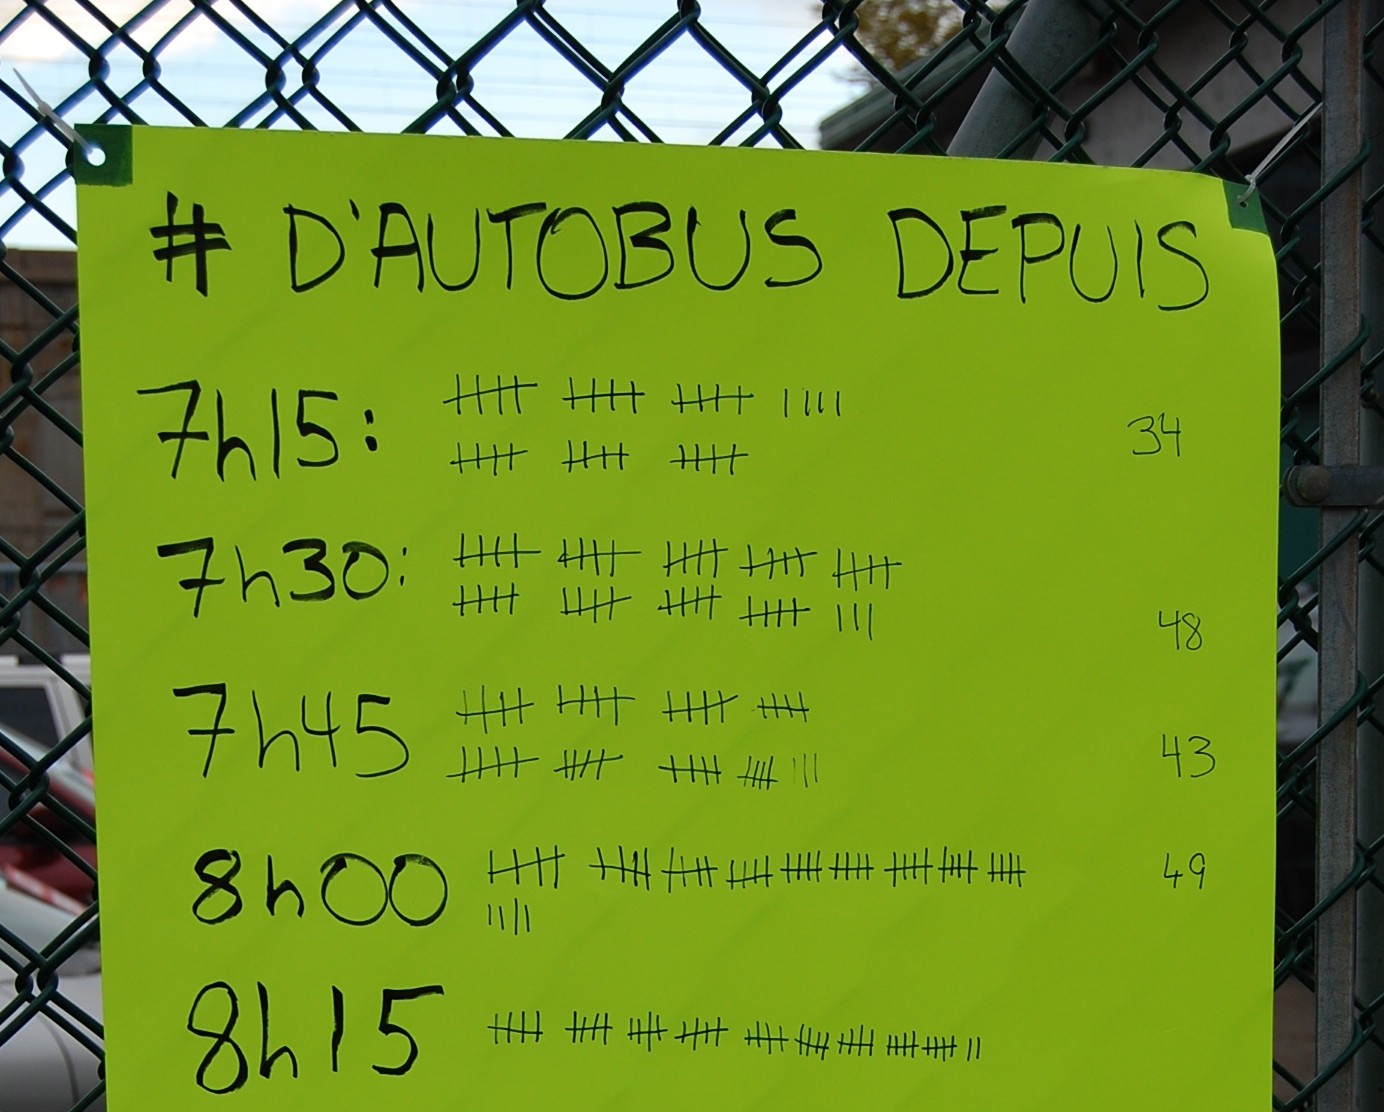 # D'AUTOBUS DEPUIS
7h15: 34
7h30: 48
7h45 43
8h00 49
8h15